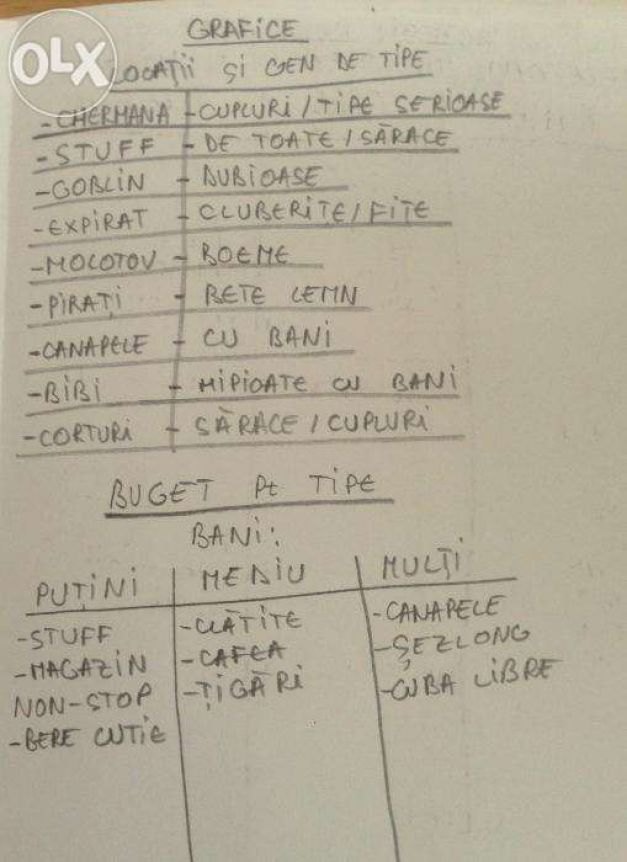 OLX
GRAFICE
LOCAȚII ȘI GEN DE TIPE
-CHERHANA -CUPLURI/TIPE SERIOASE
-STUFF - DE TOATE/SĂRACE
-GOBLIN - DUBIOASE
-EXPIRAT - CLUBERIȚE/FIȚE
-MOLOTOV - BOEME
-PIRAȚI - BETE LEMN
-CANAPELE - CU BANI
-BIBI - HIPIOATE CU BANI
-CORTURI - SĂRACE/CUPLURI
BUGET Pt TIPE
BANI:
PUȚINI MEDIU MULȚI
-STUFF -CLĂTITE -CANAPELE
-MAGAZIN -CAFEA -ȘEZLONG
NON-STOP -ȚIGĂRI -CUBA LIBRE
-BERE CUTIE